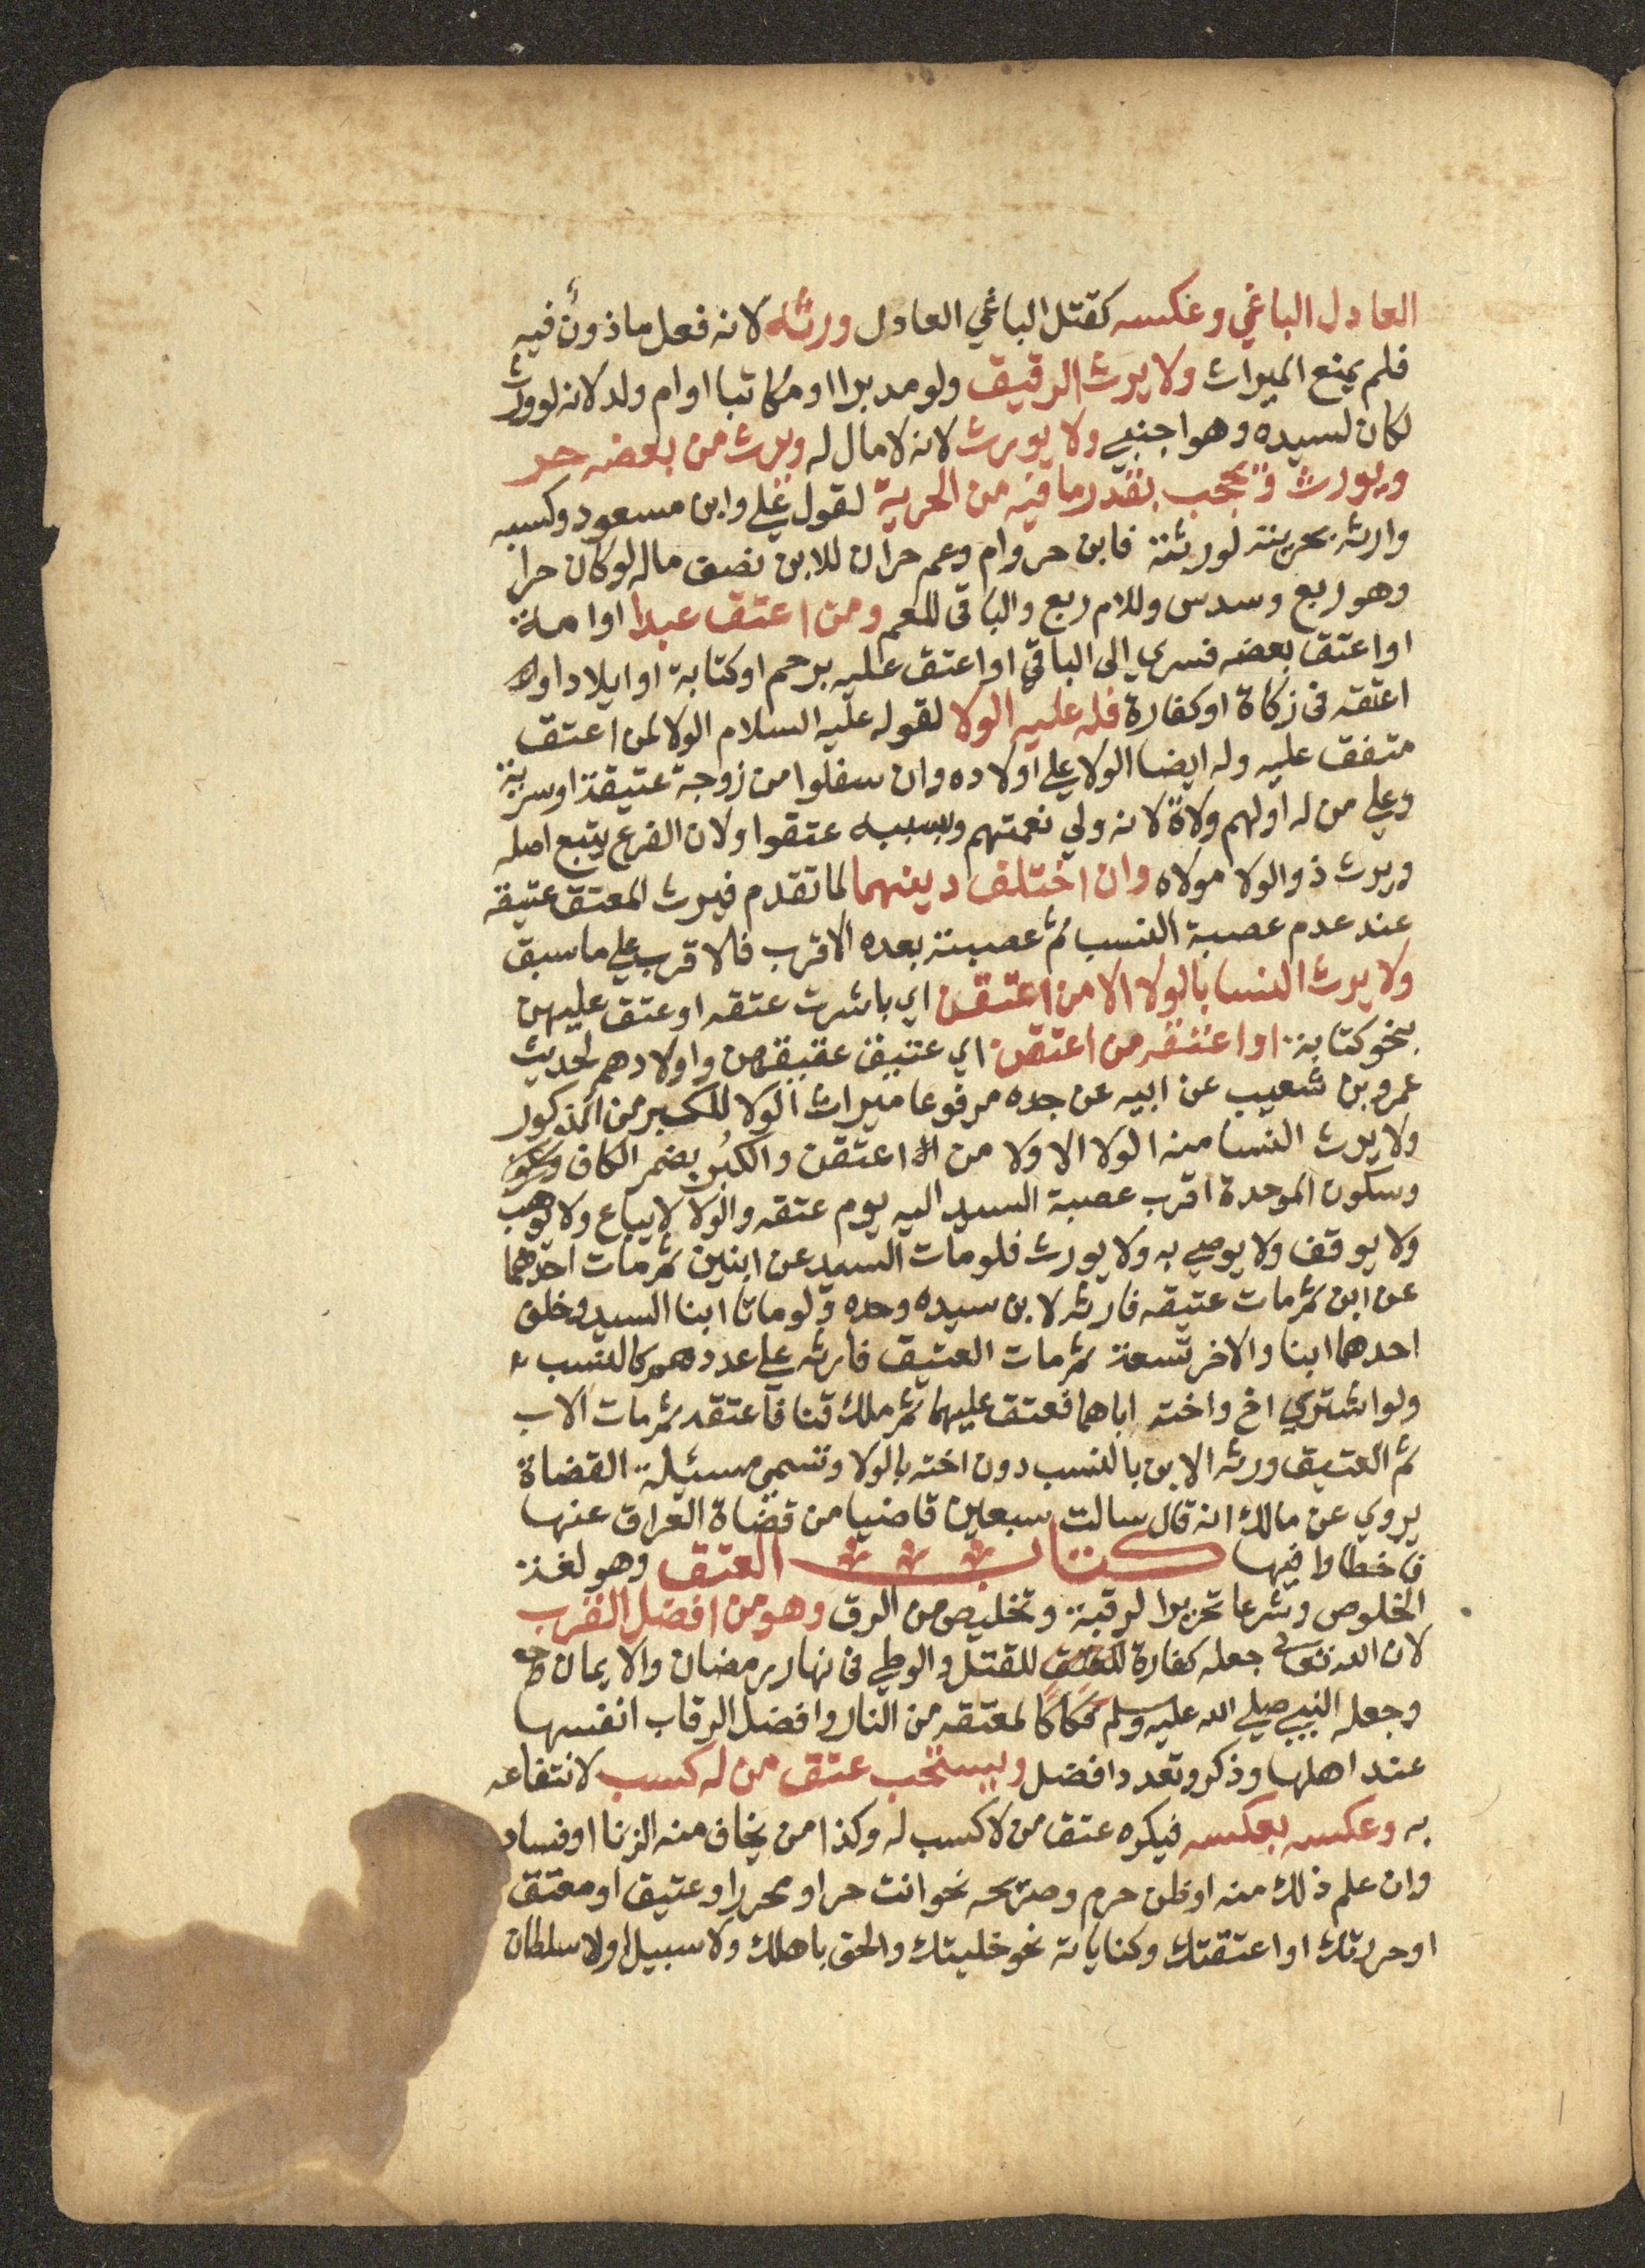 العادل الباغي وعكسه كقتل الباغي العادل ورثه لانه فعل ماذون فيه
فلم يمنع الميراث ولا يرث الرقيق ولو مدبرا او مكاتبا او ام ولد لانه لو ورث
لكان لسيده وهو اجنبي ولا يورث لانه لا مال له ويرث من بعضه حر
ويورث ويحجب بقدر ما فيه من الحرية لقول علي وابن مسعود وكسبه
وارثه بحريته لورثته فابن حر وام وعم حران للابن نصف ماله لو كان حرا
وهو ربع وسدس وللام ربع والباقي للعم ومن اعتق عبدا او امة
او اعتق بعضه فسري الى الباقي او اعتق عليه برحم او كتابة او ايلاد او
اعتقه في زكاة او كفارة فله عليه الولا لقوله عليه السلام الولا لمن اعتق
متفق عليه وله ايضا الولا علي اولاده وان سفلوا من زوجة عتيقة او سرية
وعلي من له اولهم ولاة لانه ولي نعمتهم وبسببه عتقوا ولان الفرع يتبع اصله
ويرث ذو الولا مولاه وان اختلف دينهما لما تقدم فيرث المعتق عتيقه
عند عدم عصبة النسب ثم عصبته بعده الاقرب فالاقرب علي ما سبق
ولا يرث النسا بالولا الا من اعتقن اي باشرت عتقه او عتق عليهن
بنحو كتابة او اعتقه من اعتقن اي عتيق عتيقهن واولادهم لحديث
عمرو بن شعيب عن ابيه عن جده مرفوعا ميراث الولا للكبر من الذكور
ولا يرث النسا منه الولا الا ولا من اعتقن والكبر بضم الكاف
وسكون الموحدة اقرب عصبة السيد اليه يوم عتقه والولا لا يباع ولا يوهب
ولا يوقف ولا يوصي به ولا يورث فلو مات السيد عن ابنين ثم مات احدهما
عن ابن ثم مات عتيقه فارثه لابن سيده وحده ولو ماتا ابنا السيد وخلف
احدهما ابنا والاخر تسعة ثم مات العتيق فارثه علي عددهم كالنسب
ولو اشتري اخ واخته اباهما فعتق عليهما ثم ملك قنا فاعتقه ثم مات الاب
ثم العتيق ورثه الابن بالنسب دون اخته بالولا وتسمي مسئلة القضاة
يروي عن مالك انه قال سالت سبعين قاضيا من قضاة العراق عنها
فاخطاوا فيها كتاب العتق وهو لغة
الخلوص وشرعا تحرير الرقبة وتخليص من الرق وهو من افضل القرب
لان الله تعالى جعله كفارة للقتل والوطي في نهار رمضان والايمان
وجعله النبي صلي الله عليه وسلم فكاكا لمعتقه من النار وافضل الرقاب انفسها
عند اهلها وذكر وتعدد افضل ويستحب عتق من له كسب لانتفاعه
به وعكسه بعكسه فيكره عتق من لا كسب له وكذا من يخاف منه الزنا او فساد
وان علم ذلك منه او ظن حرم وصريحه نحو انت حر او محرر او عتيق او معتق
او حررتك او اعتقتك وكناياته نحو خليتك والحق باهلك ولا سبيل او لا سلطان